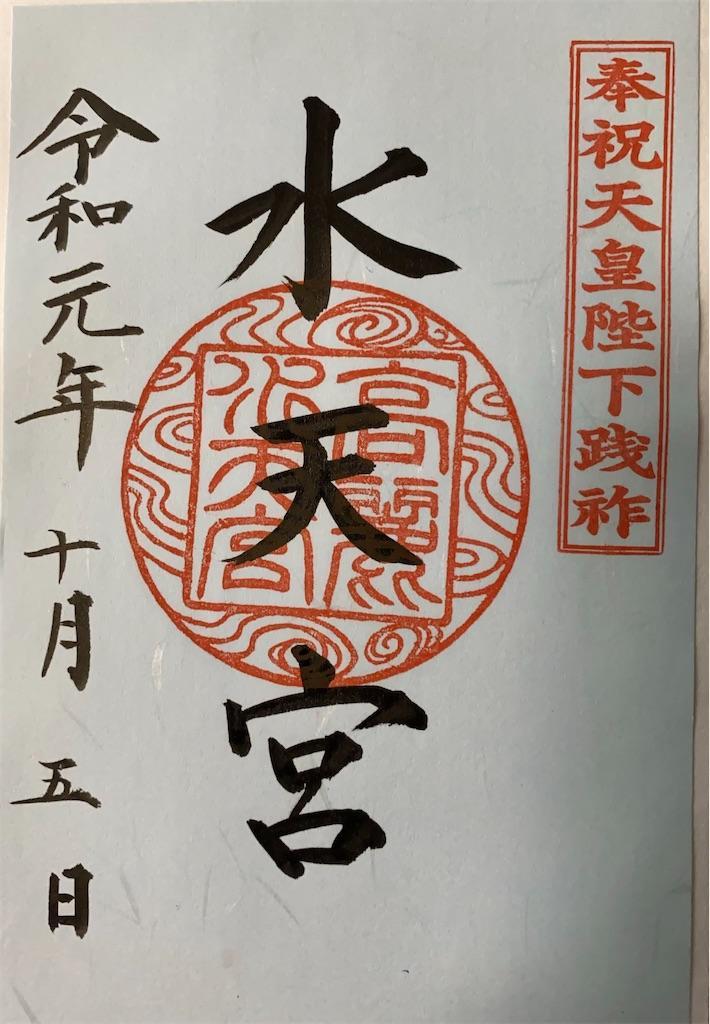 奉祝天皇陛下践祚
水天宮
高麗
水天宮
令和元年 十月 五日